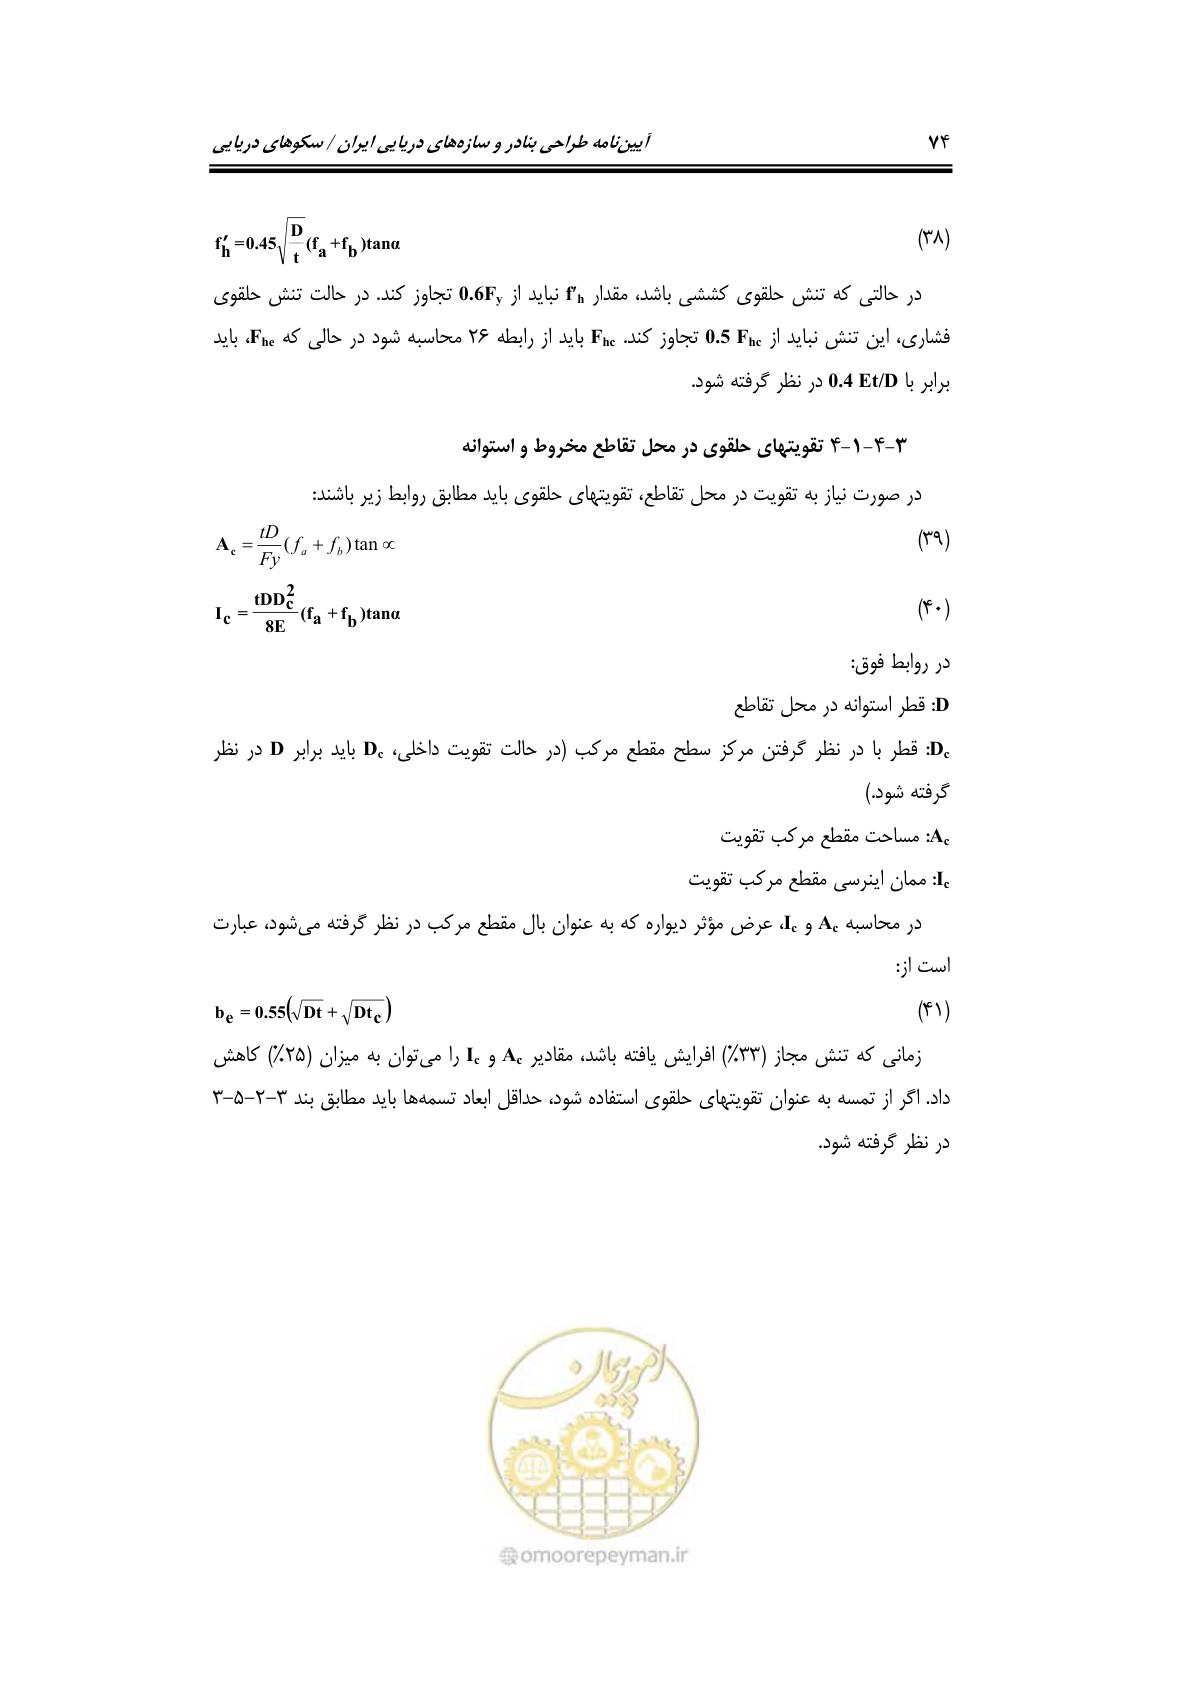 ۷۴ آیین‌نامه طراحی بنادر و سازه‌های دریایی ایران / سکوهای دریایی
f′h =0.45√(D/t) (fa +fb )tanα (۳۸)
در حالتی که تنش حلقوی کششی باشد، مقدار f′h نباید از 0.6Fy تجاوز کند. در حالت تنش حلقوی
فشاری، این تنش نباید از 0.5 Fhc تجاوز کند. Fhc باید از رابطه ۲۶ محاسبه شود در حالی که Fhe، باید
برابر با 0.4 Et/D در نظر گرفته شود.
۳-۴-۱-۴ تقویتهای حلقوی در محل تقاطع مخروط و استوانه
در صورت نیاز به تقویت در محل تقاطع، تقویتهای حلقوی باید مطابق روابط زیر باشند:
Ac = tD/Fy (fa + fb) tan ∝ (۳۹)
Ic = tDDc²/8E (fa + fb )tanα (۴۰)
در روابط فوق:
D: قطر استوانه در محل تقاطع
Dc: قطر با در نظر گرفتن مرکز سطح مقطع مرکب (در حالت تقویت داخلی، Dc باید برابر D در نظر
گرفته شود.)
Ac: مساحت مقطع مرکب تقویت
Ic: ممان اینرسی مقطع مرکب تقویت
در محاسبه Ac و Ic، عرض مؤثر دیواره که به عنوان بال مقطع مرکب در نظر گرفته می‌شود، عبارت
است از:
be = 0.55(√Dt + √Dtc) (۴۱)
زمانی که تنش مجاز (۳۳٪) افرایش یافته باشد، مقادیر Ac و Ic را می‌توان به میزان (۲۵٪) کاهش
داد. اگر از تمسه به عنوان تقویتهای حلقوی استفاده شود، حداقل ابعاد تسمه‌ها باید مطابق بند ۳-۲-۵-۳
در نظر گرفته شود.
امور پیمان
@omoorepeyman.ir